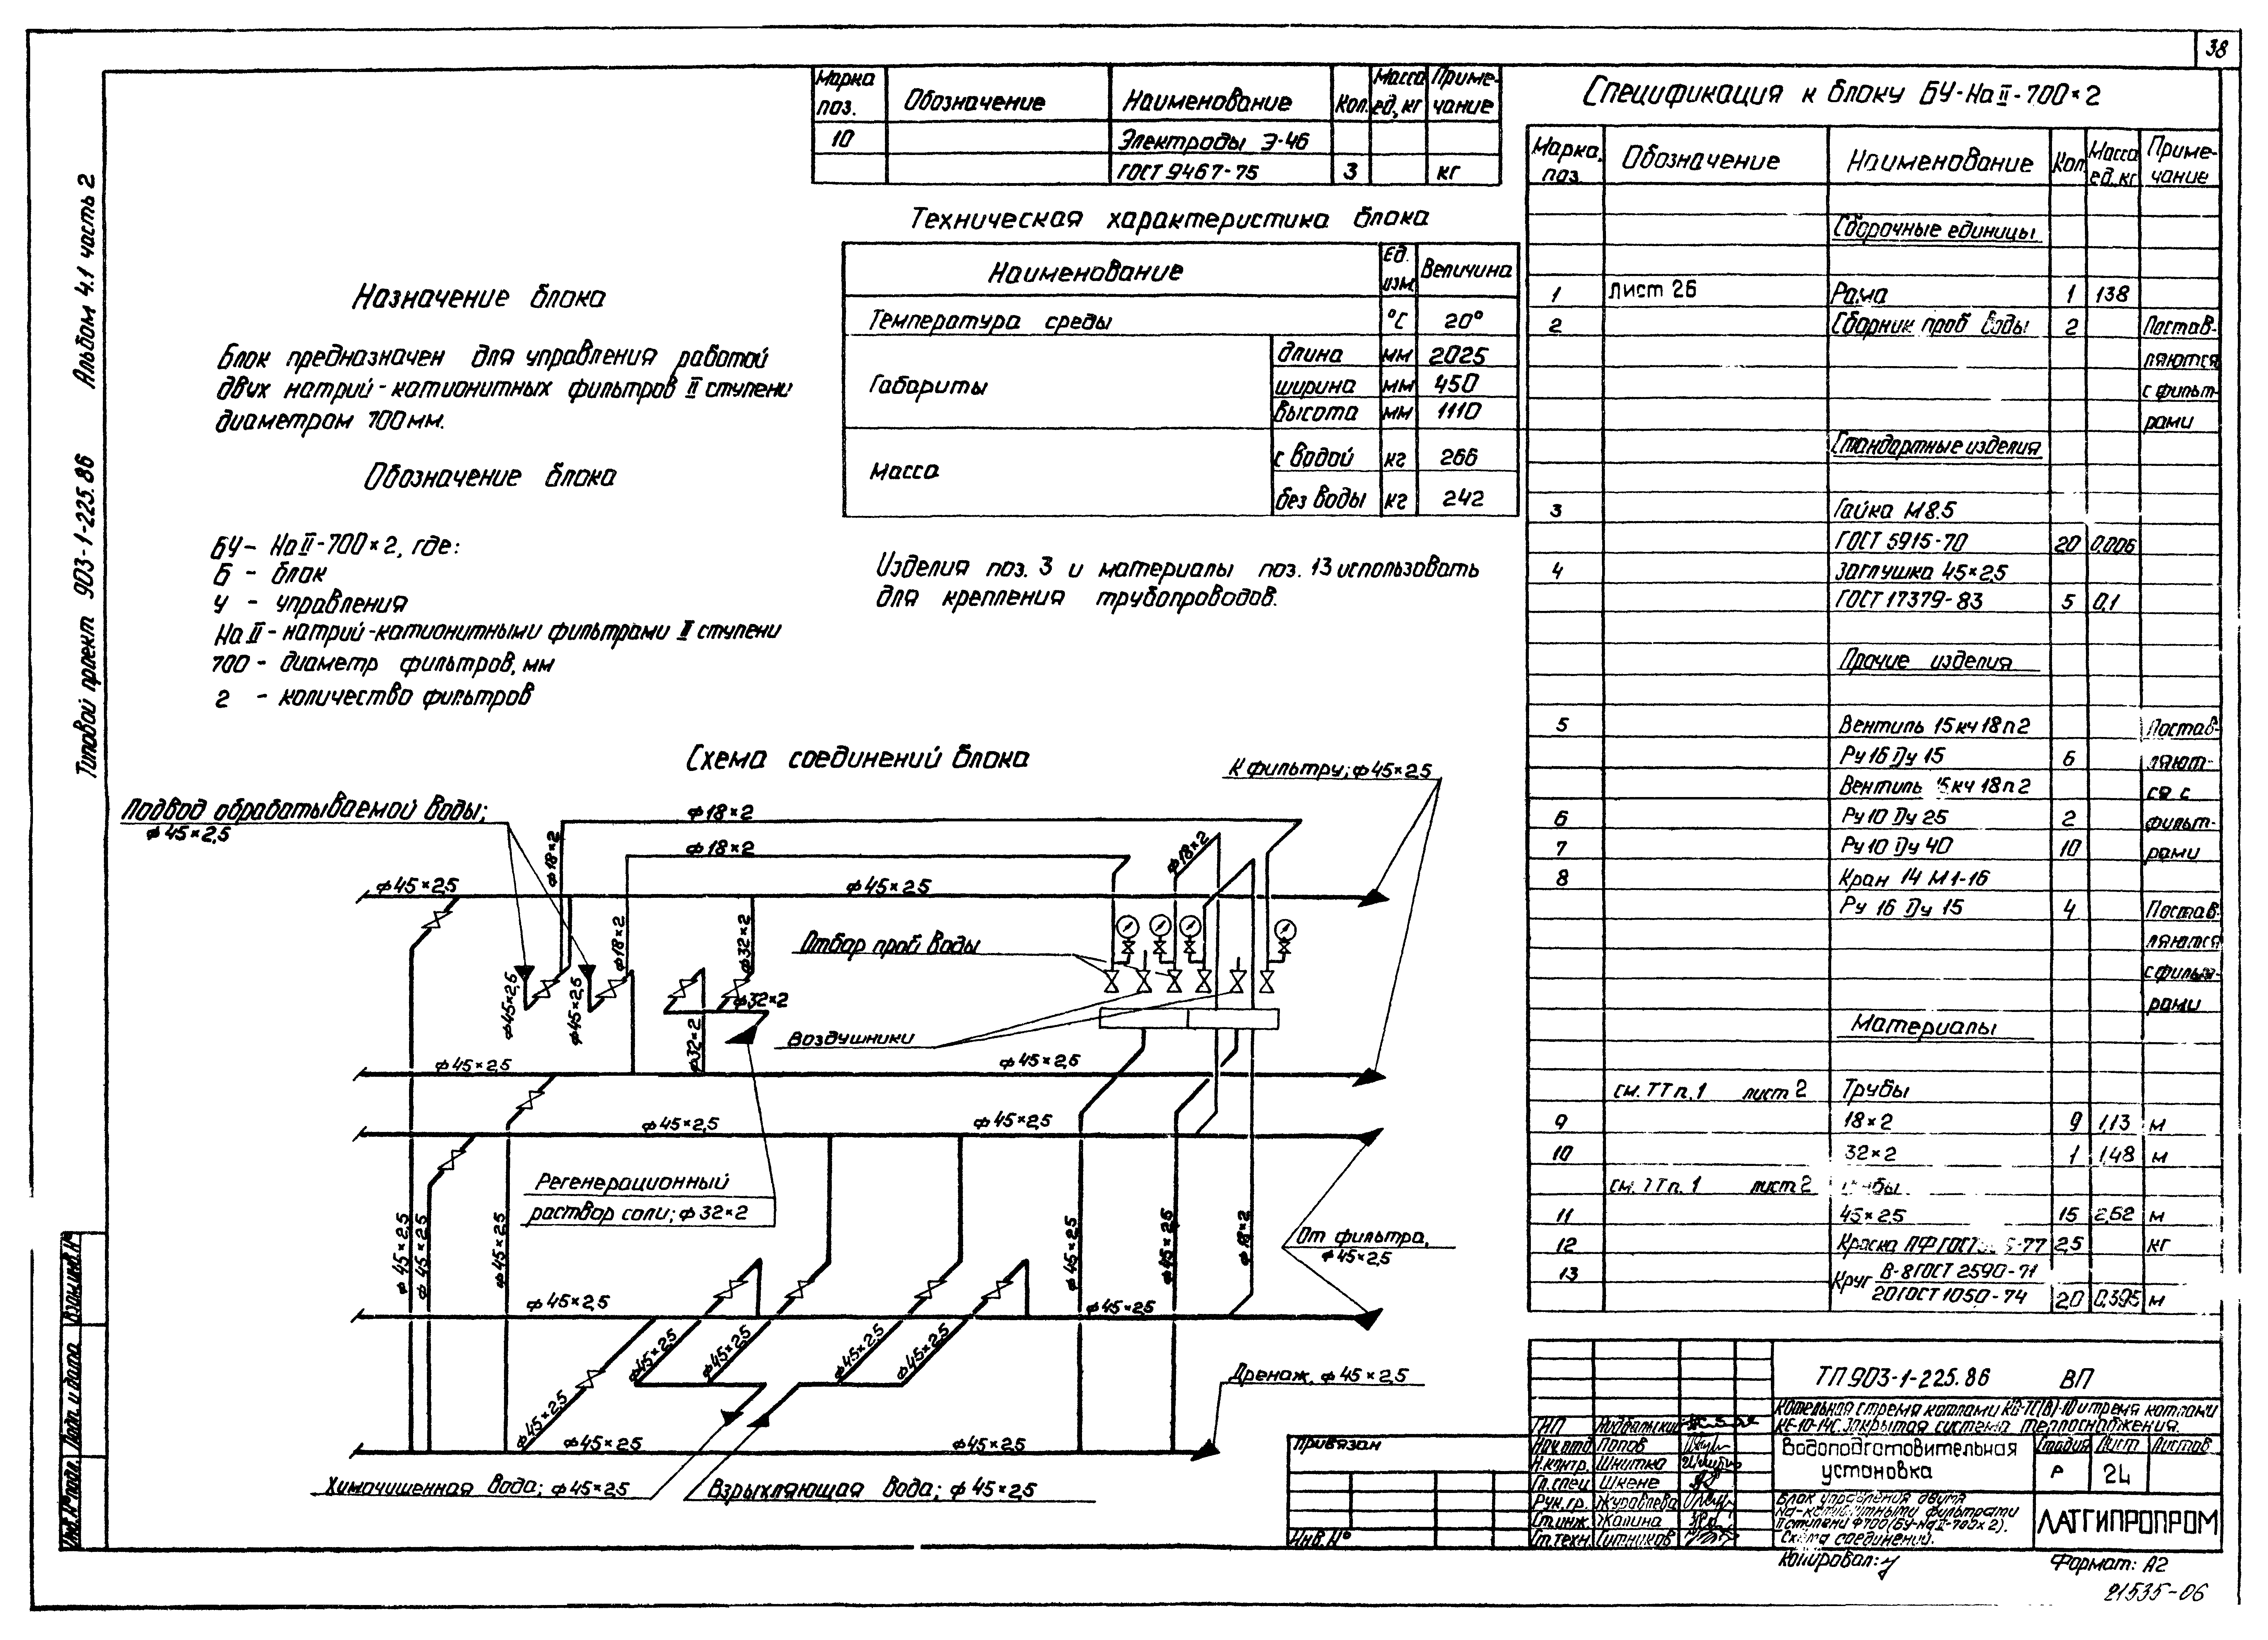 38
Альбом 4.1 часть 2
Типовой проект 903-1-225.86
Марка поз. Обозначение Наименование Кол. Масса ед,кг Приме-чание
10 Электроды Э-46
ГОСТ 9467-75 3 кг
Техническая характеристика блока
Наименование Ед. изм Величина
Температура среды °С 20°
Габариты длина мм 2025
ширина мм 450
высота мм 1110
Масса с водой кг 266
без воды кг 242
Изделия поз. 3 и материалы поз. 13 использовать
для крепления трубопроводов.
Назначение блока
Блок предназначен для управления работой
двух натрий-катионитных фильтров II ступени
диаметром 700 мм.
Обозначение блока
БУ- Na II-700×2, где:
Б - блок
У - управления
Na II - натрий-катионитными фильтрами II ступени
700 - диаметр фильтров, мм
2 - количество фильтров
Схема соединений блока
К фильтру; ф45×2,5
Подвод обрабатываемой воды;
ф45×2,5
ф18×2
ф18×2
ф18×2
ф18×2
ф45×2,5
ф45×2,5
ф18×2
ф32×2
Отбор проб воды
ф45×2,5
ф45×2,5
ф32×2
ф32×2
Воздушники
ф45×2,5
ф45×2,5
ф45×2,5
ф45×2,5
Регенерационный
раствор соли; ф32×2
ф45×2,5
ф45×2,5
ф45×2,5
ф45×2,5
ф45×2,5
ф18×2
От фильтра,
ф45×2,5
ф45×2,5
ф45×2,5
ф45×2,5
ф45×2,5
ф45×2,5
ф45×2,5
ф45×2,5
Дренаж, ф45×2,5
ф45×2,5
ф45×2,5
Химочищенная вода; ф45×2,5
Взрыхляющая вода; ф45×2,5
Спецификация к блоку БУ-Na II-700×2
Марка, поз. Обозначение Наименование Кол. Масса ед.кг Приме-чание
Сборочные единицы
1 Лист 26 Рама 1 138
2 Сборник проб воды 2 Постав-
ляются
с фильт-
рами
Стандартные изделия
3 Гайка М8.5
ГОСТ 5915-70 20 0,006
4 Заглушка 45×2,5
ГОСТ 17379-83 5 0,1
Прочие изделия
5 Вентиль 15кч18п2 Постав-
Ру 16 Ду 15 6 ляют-
Вентиль 15кч18п2 ся с
6 Ру10 Ду 25 2 фильт-
7 Ру10 Ду 40 10 рами
8 Кран 14 М1-16
Ру 16 Ду 15 4 Постав-
ляются
с фильт-
рами
Материалы
см. ТТ п.1 лист 2 Трубы
9 18×2 9 1,13 м
10 32×2 1 1,48 м
см. ТТ п.1 лист 2
11 45×2,5 15 2,62 м
12 Краска ПФ ГОСТ 2,5 кг
13 Круг В-8 ГОСТ 2590-71
20 ГОСТ 1050-74 20 0,395 м
ТП 903-1-225.86 ВП
Котельная с тремя котлами и тремя котлами
КЕ-10-14С. Закрытая система теплоснабжения.
Водоподготовительная установка
Стадия Лист Листов
Р 24
Блок управления двумя
Na-катионитными фильтрами
II ступени ф700 (БУ-Na II-700×2).
Схема соединений.
ЛАТГИПРОПРОМ
ГИП
Нач.отд. Попов
Н.контр. Шнитка
Гл.спец Шкене
Рук.гр. Журавлева
Ст.инж. Жалина
Ст.техн. Ситников
Привязан
Инв.№
Копировал:
Формат: А2
21535-06
Взам.инв.№
Подп. и дата
Инв.№ подл.